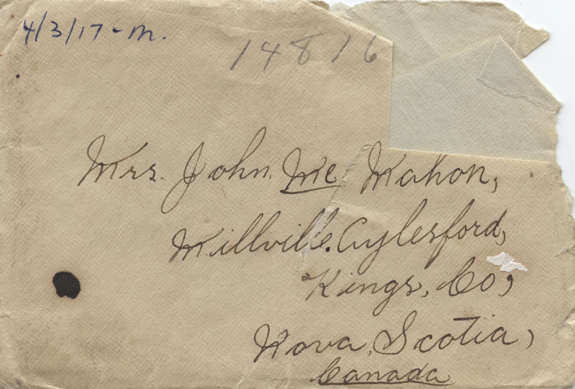 4/3/17-M.
14816
Mrs. John Mc Mahon,
Millville. Aylesford,
Kings, Co,
Nova, Scotia,
Canada